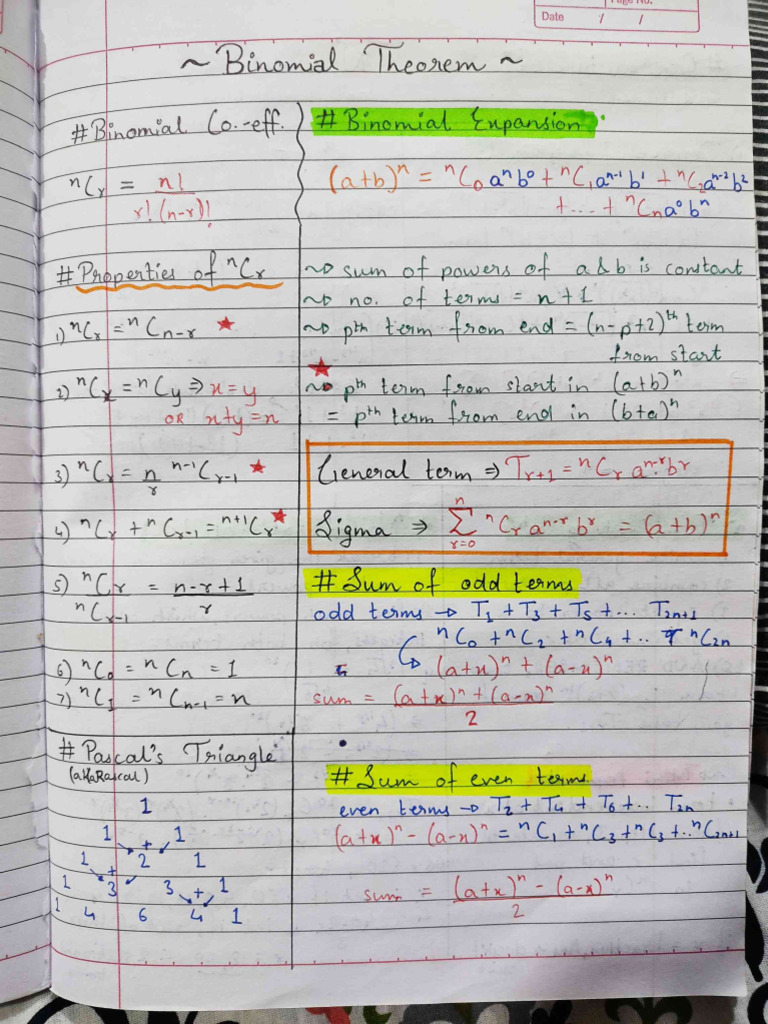 Page No.
Date / /
~ Binomial Theorem ~
# Binomial Co.-eff.
ⁿCᵣ = n! / r! (n-r)!
# Properties of ⁿCᵣ
1) ⁿCᵣ = ⁿCₙ₋ᵣ ★
2) ⁿCₓ = ⁿCy ⇒ x = y
OR x+y = n
3) ⁿCᵣ = n/r ⁿ⁻¹Cᵣ₋₁ ★
4) ⁿCᵣ + ⁿCᵣ₋₁ = ⁿ⁺¹Cᵣ ★
5) ⁿCᵣ / ⁿCᵣ₋₁ = n-r+1 / r
6) ⁿC₀ = ⁿCₙ = 1
7) ⁿC₁ = ⁿCₙ₋₁ = n
# Pascal's Triangle
(aka Rascal)
1
1 + 1
1 + 2 1
1 3 3 + 1
1 4 6 4 1
# Binomial Expansion
(a+b)ⁿ = ⁿC₀ aⁿb⁰ + ⁿC₁aⁿ⁻¹b¹ + ⁿC₂aⁿ⁻²b²
+ ... + ⁿCₙa⁰bⁿ
~> sum of powers of a & b is constant
~> no. of terms = n+1
~> pᵗʰ term from end = (n-p+2)ᵗʰ term
from start
★
~> pᵗʰ term from start in (a+b)ⁿ
= pᵗʰ term from end in (b+a)ⁿ
General term ⇒ Tᵣ₊₁ = ⁿCᵣ aⁿ⁻ʳ bʳ
Sigma ⇒ n Σ r=0 ⁿCᵣ aⁿ⁻ʳ bʳ = (a+b)ⁿ
# Sum of odd terms
odd terms → T₁ + T₃ + T₅ + ... T₂ₙ₊₁
ⁿC₀ + ⁿC₂ + ⁿC₄ + .. + ⁿC₂ₙ
(a+x)ⁿ + (a-x)ⁿ
sum = (a+x)ⁿ + (a-x)ⁿ / 2
# Sum of even terms
even terms → T₂ + T₄ + T₆ + .. T₂ₙ
(a+x)ⁿ - (a-x)ⁿ = ⁿC₁ + ⁿC₃ + ⁿC₃ + ..ⁿC₂ₙ₊₁
sum = (a+x)ⁿ - (a-x)ⁿ / 2